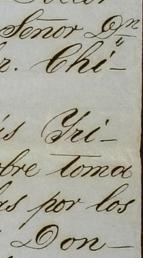 Señor Dn
r. Chi-
is Tri-
bre toma
as por los
Don-